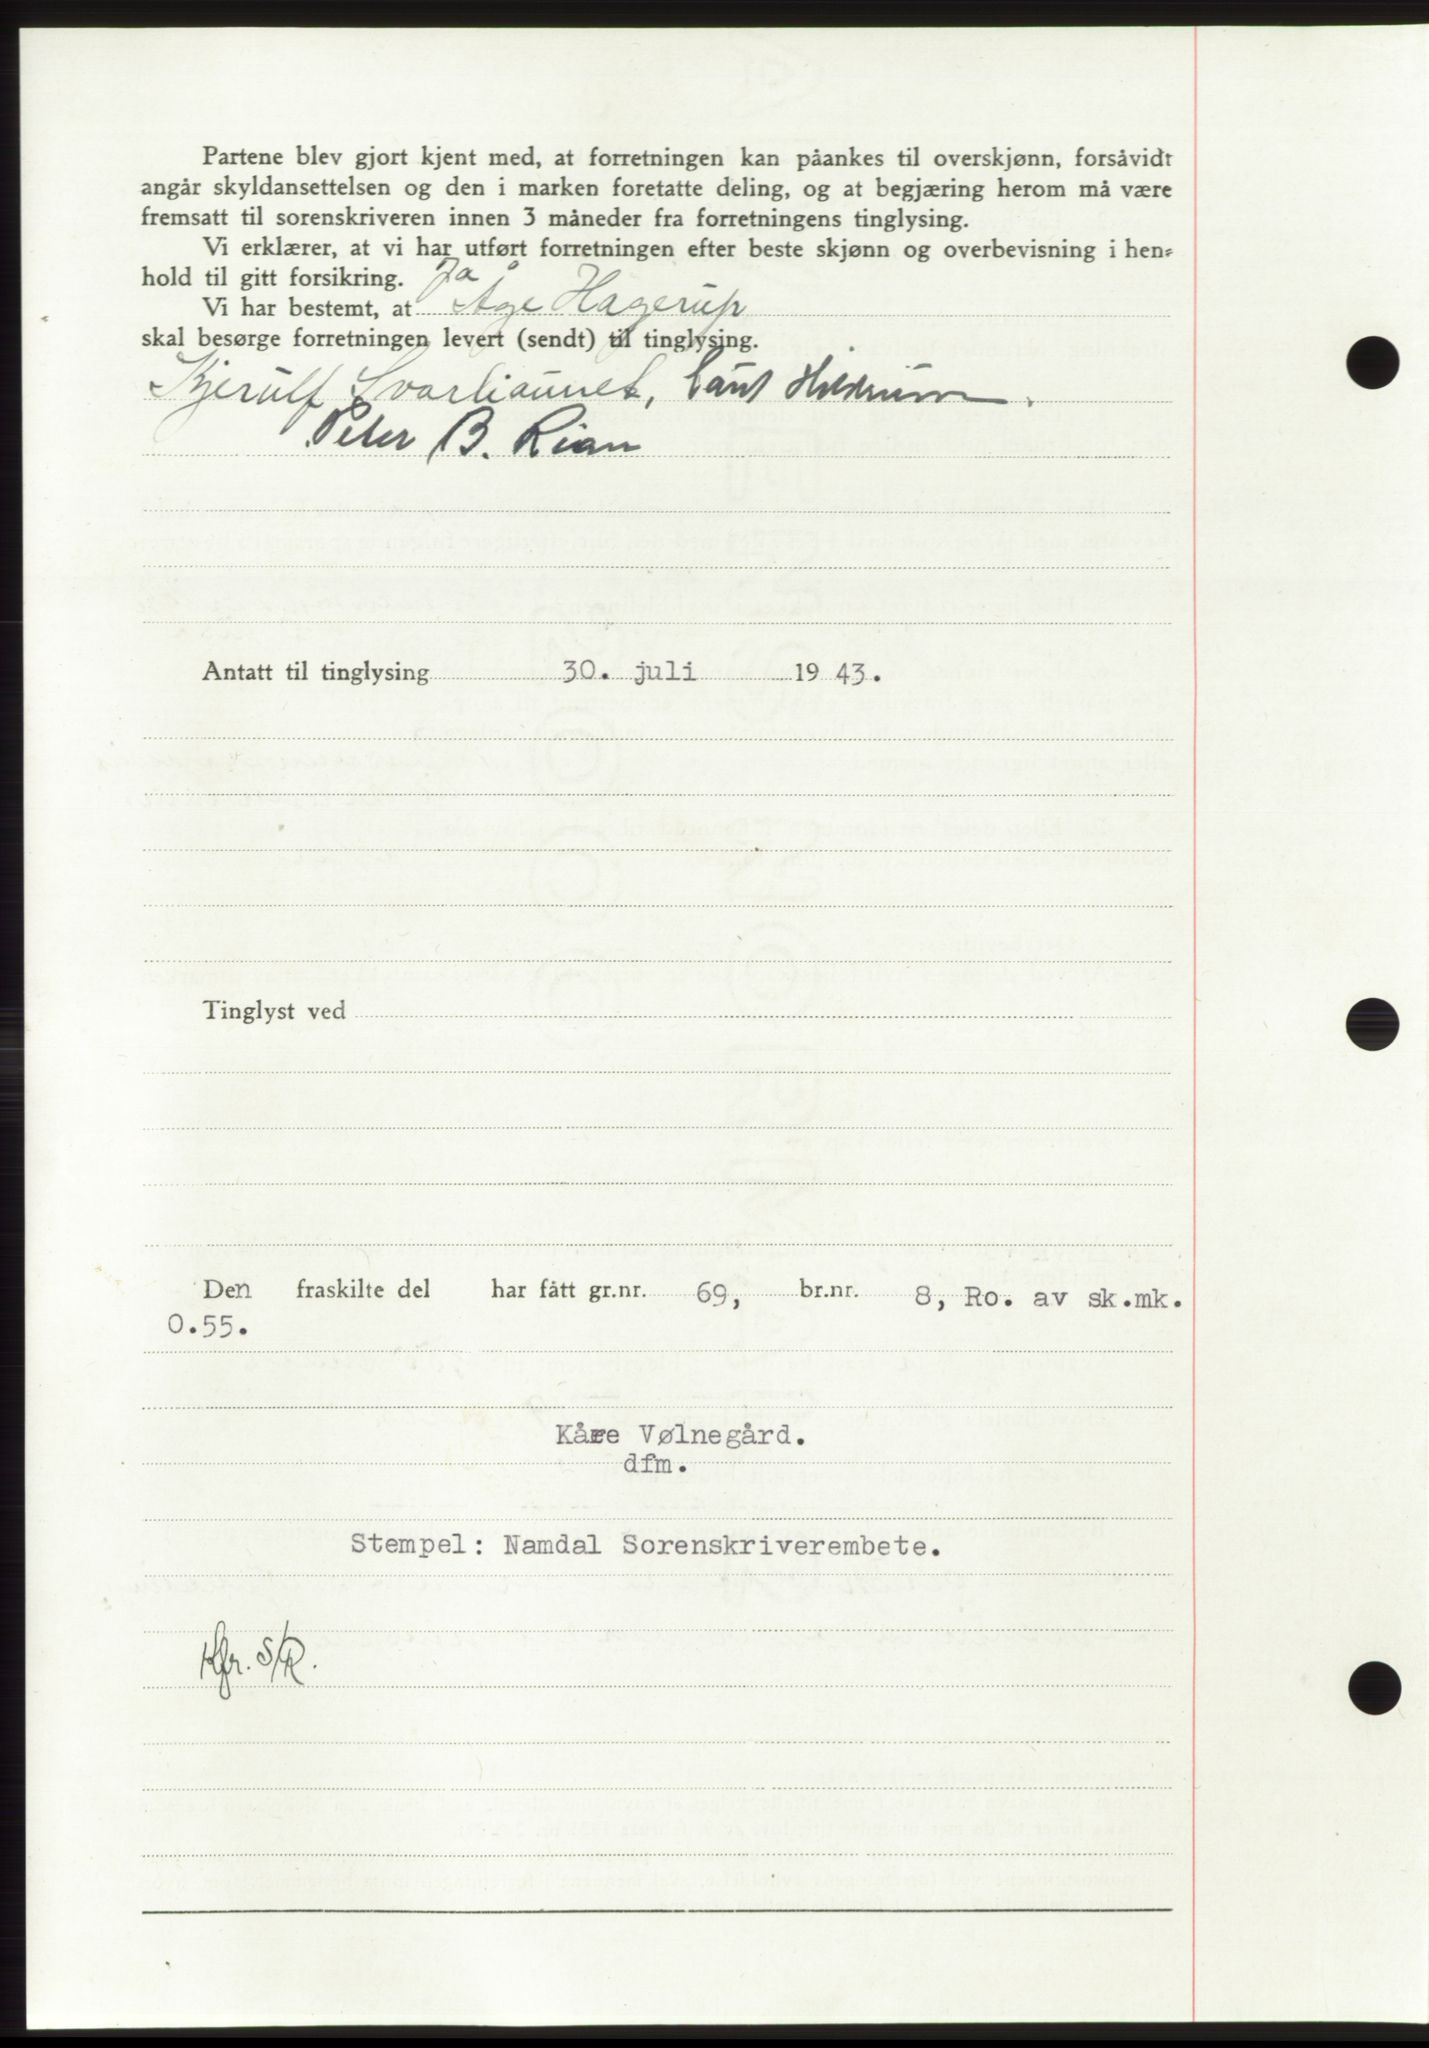 Partene blev gjort kjent med, at forretningen kan påankes til overskjønn, forsåvidt
angår skyldansettelsen og den i marken foretatte deling, og at begjæring herom må være
fremsatt til sorenskriveren innen 3 måneder fra forretningens tinglysing.
Vi erklærer, at vi har utført forretningen efter beste skjønn og overbevisning i hen-
hold til gitt forsikring. Ja
Vi har bestemt, at Åge Hagerup
skal besørge forretningen levert (sendt) til tinglysing.
Kjerulf Svarliaunet, Hildrum.
Peter B. Rian
Antatt til tinglysing 30. juli 19 43.
Tinglyst ved
Den fraskilte del har fått gr.nr. 69, br.nr. 8, Ro. av sk.mk.
0.55.
Kåre Vølnegård.
dfm.
Stempel: Namdal Sorenskriverembete.
Kfr. S/R.